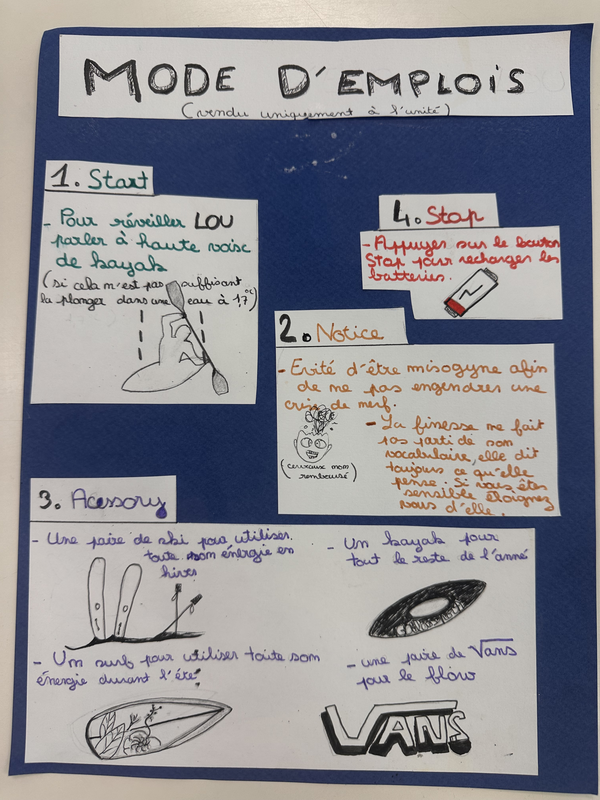 MODE D'EMPLOIS
(vendu uniquement à l'unité)
1. Start
- Pour réveiller LOU
parler à haute voix
de kayak
(si cela n'est pas suffisant
la plonger dans une eau à 17°)
4. Stop
- Appuyer sur le bouton
Stop pour recharger les
batteries.
2. Notice
- Evité d'être misogyne afin
de ne pas engendrer une
crise de nerf.
- La finesse ne fait
pas parti de son
vocabulaire, elle dit
toujours ce qu'elle
pense. Si vous êtes
sensible éloignez
vous d'elle.
(cerveaux non
remboursé)
3. Acessory
- Une paire de ski pour utiliser
toute son énergie en
hiver
- Un kayak pour
tout le reste de l'anné
- Un surf pour utiliser toute son
énergie durant l'été
- une paire de Vans
pour le flow
VANS